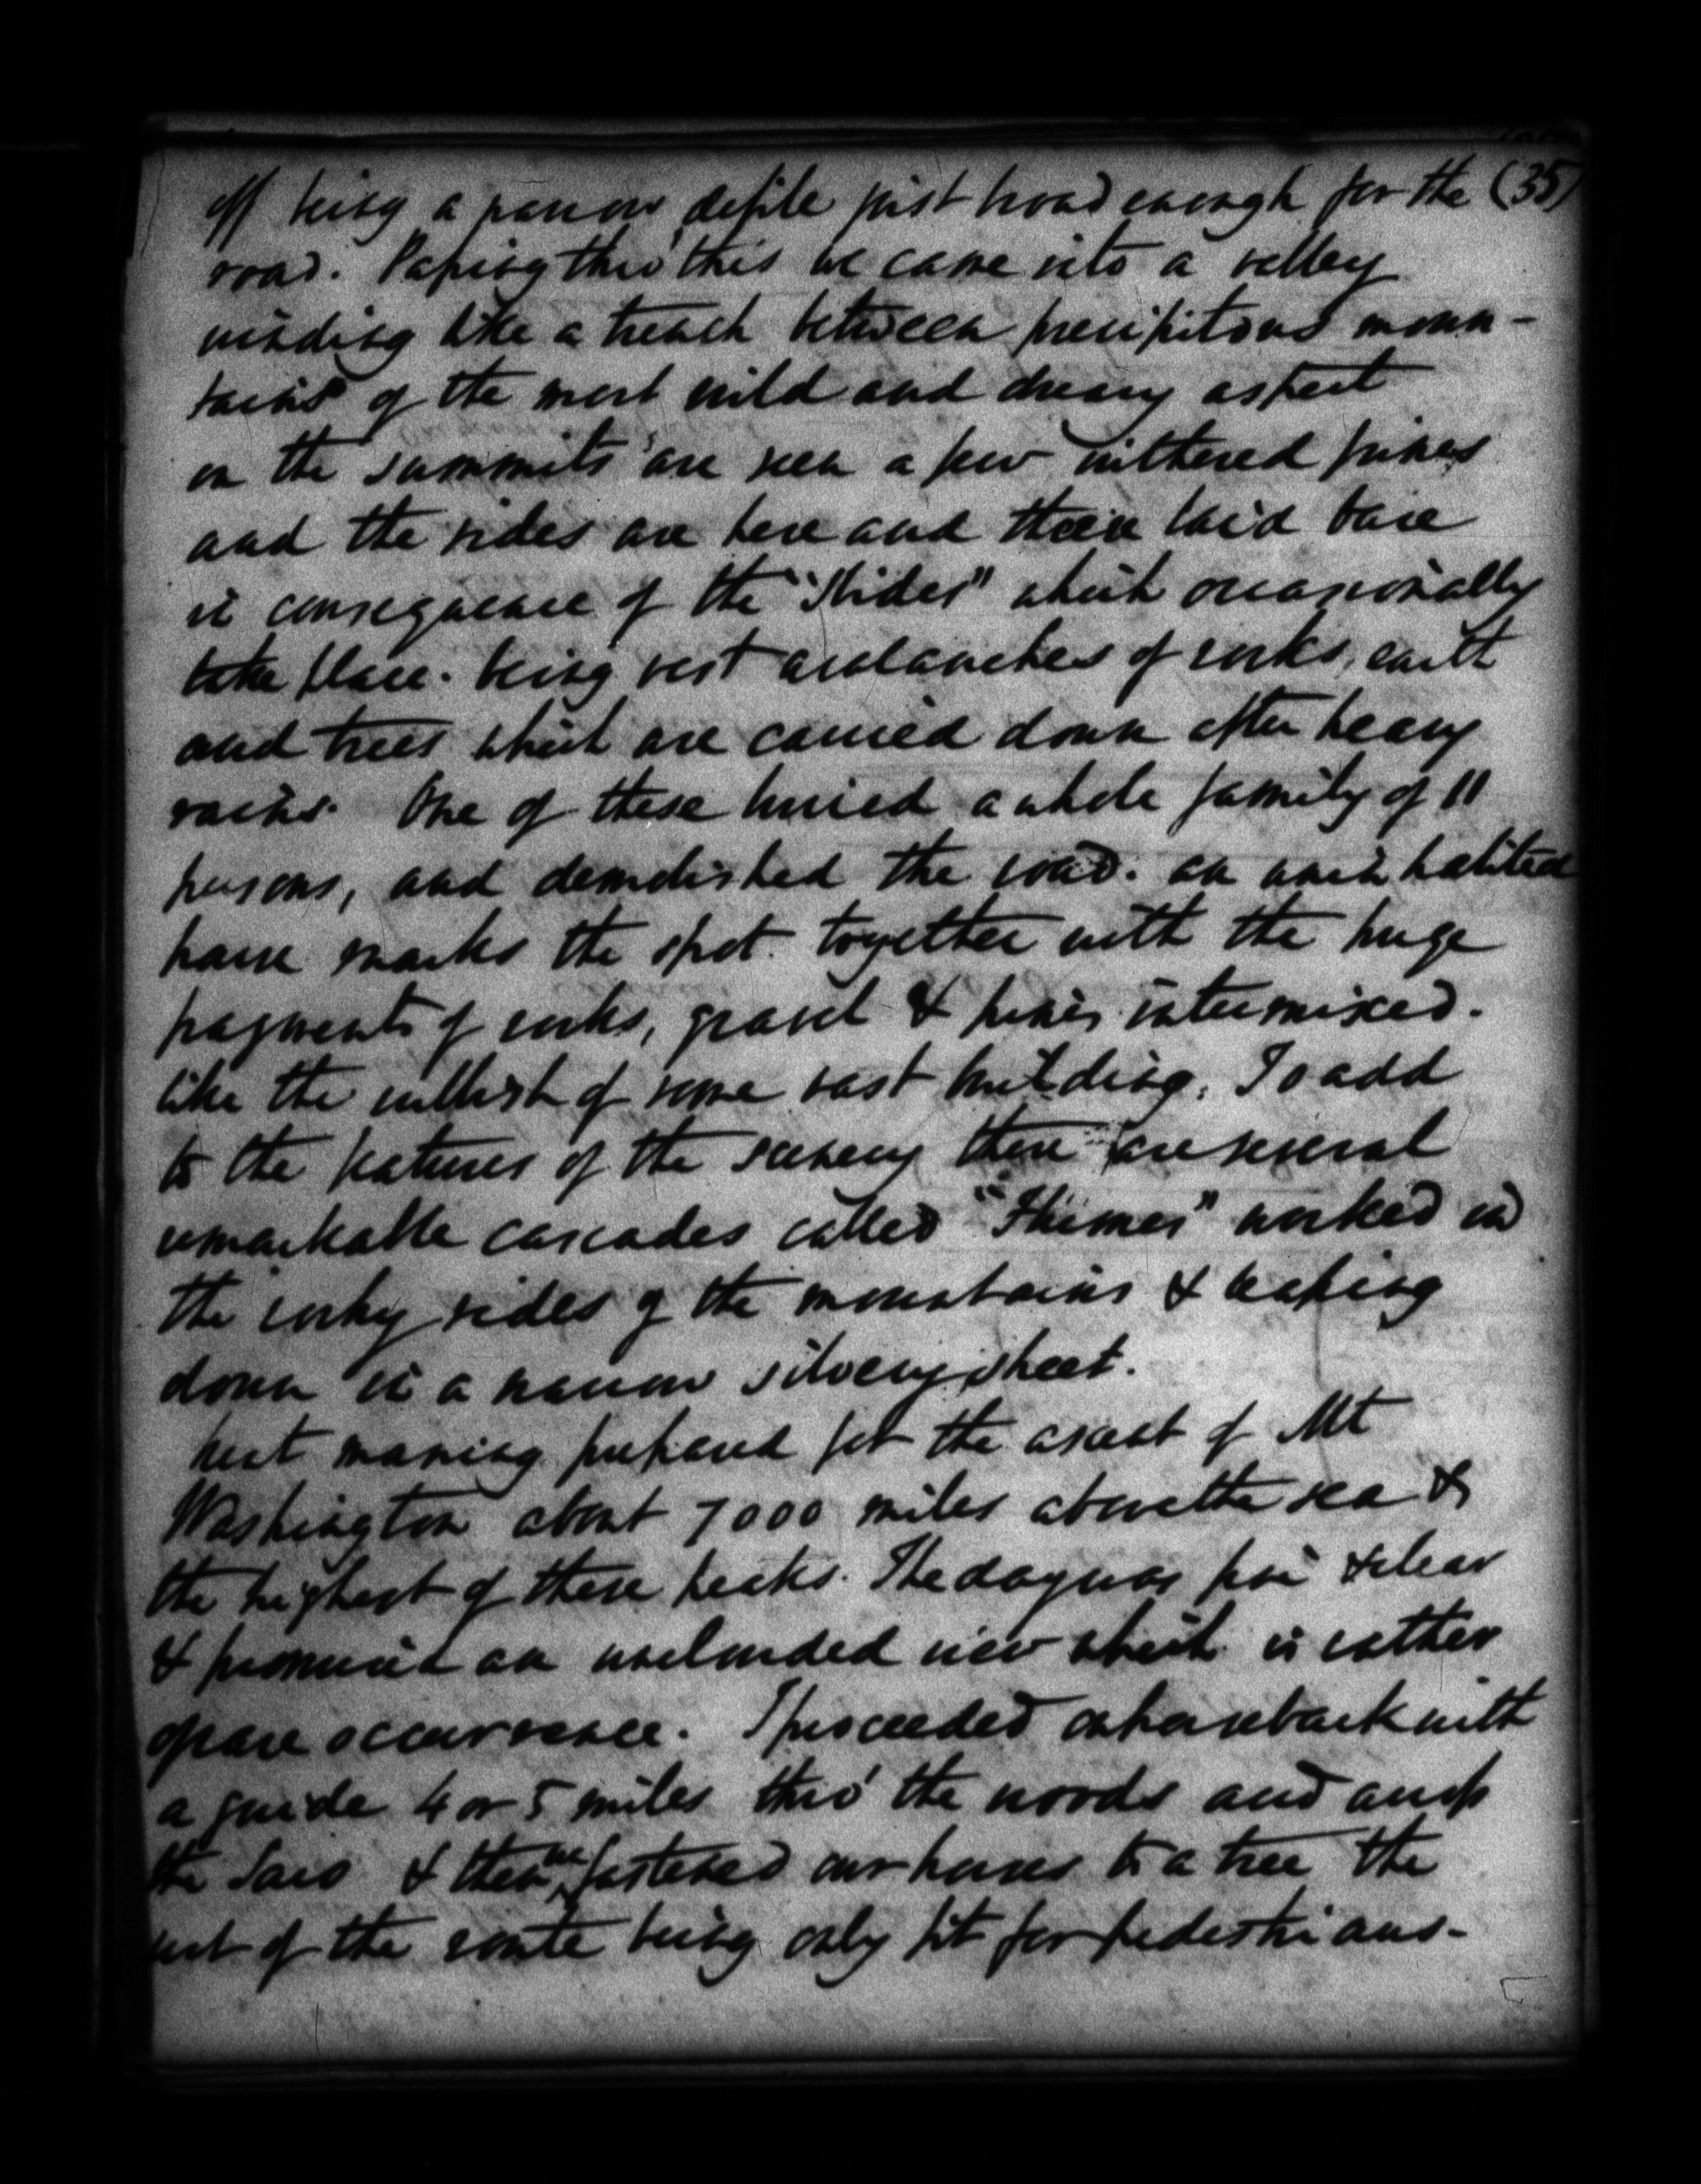 off being a narrow defile just broad enough for the (35)
road. Passing thro' this we came into a valley
winding like a trench between precipitous moun-
tains of the most wild and dreary aspect
on the summits are seen a few withered pines
and the sides are here and there laid bare
in consequence of the "Slides" which occasionally
take place. being vast avalanches of rocks, earth
and trees which are carried down after heavy
rains. One of these buried a whole family of 11
persons, and demolished the road. an uninhabited
house marks the spot. together with the huge
fragments of rocks, gravel & pines intermixed.
like the rubbish of some vast building. To add
to the features of the scenery there are several
remarkable cascades called "Flumes" worked in
the rocky sides of the mountains & leaping
down in a narrow silvery sheet.
Next morning prepared for the ascent of Mt
Washington about 7000 miles above the sea &
the highest of these peaks. The day was fine & clear
& promised an unclouded view which is rather
of rare occurrence. I proceeded on horseback with
a guide 4 or 5 miles thro' the woods and across
the Saco & then we fastened our horses to a tree the
rest of the route being only fit for pedestrians-